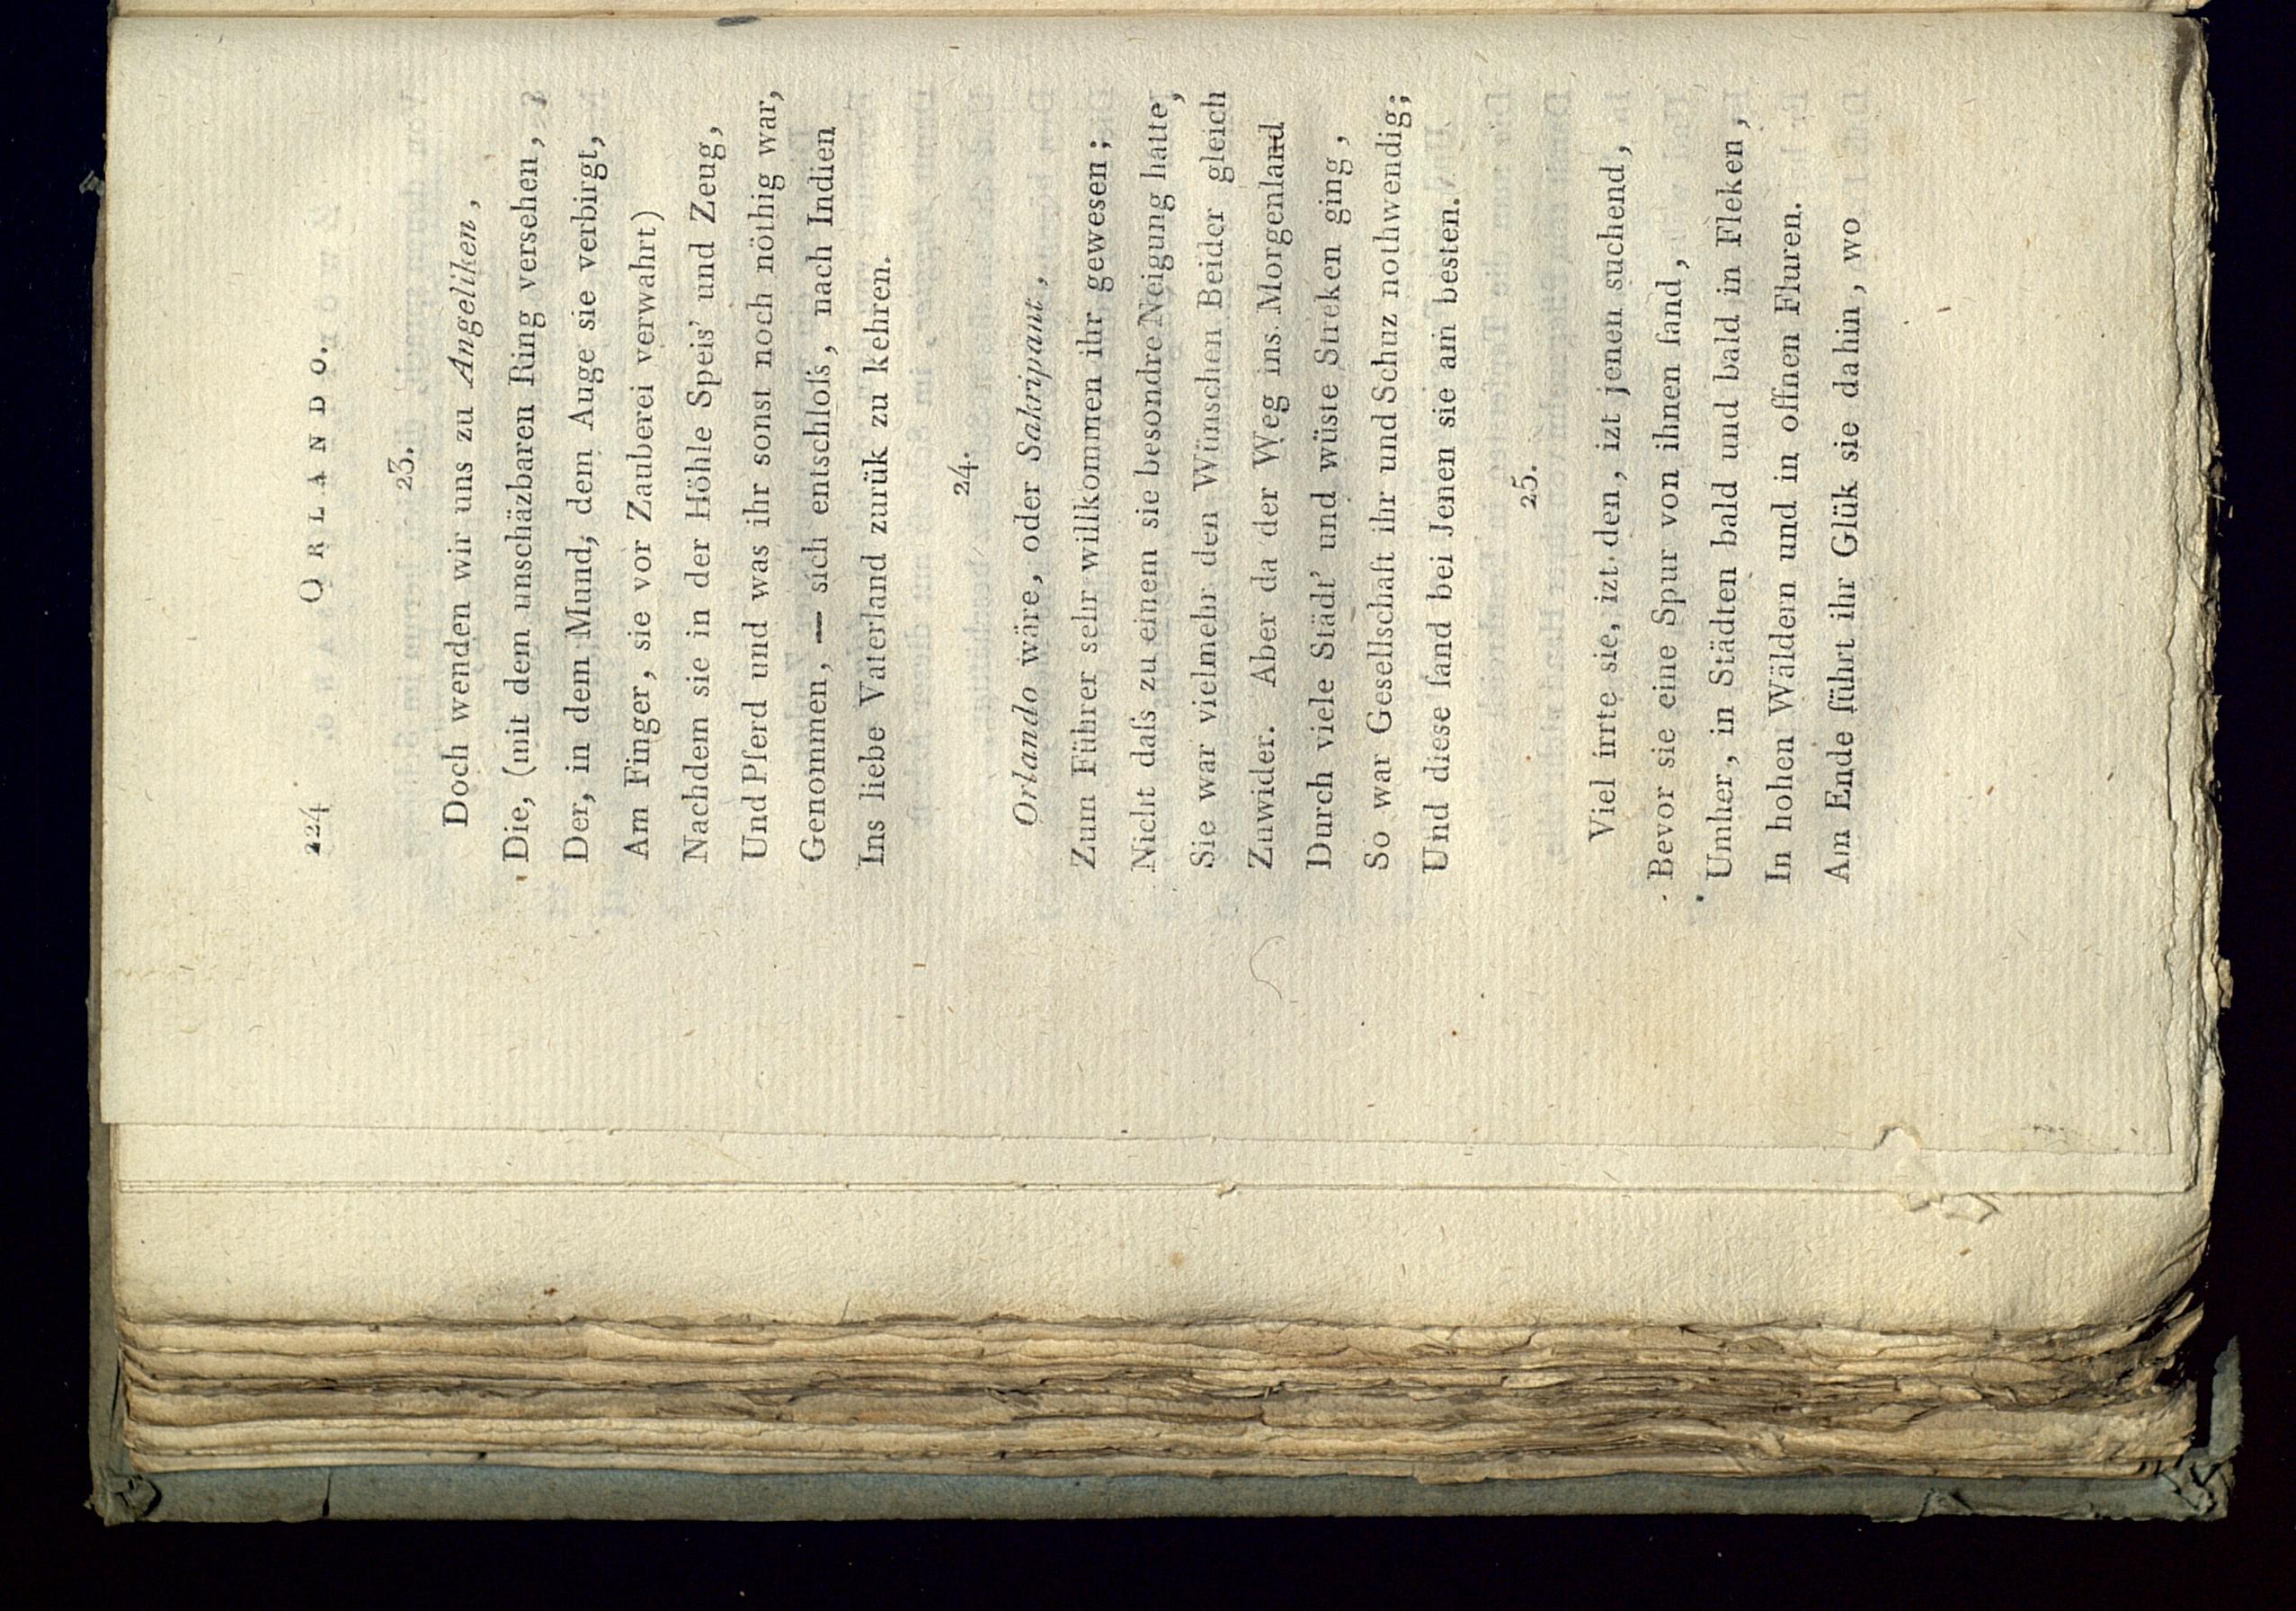 224 ORLANDO.
23.
Doch wenden wir uns zu Angeliken,
Die, (mit dem unschäzbaren Ring versehen,
Der, in dem Mund, dem Auge sie verbirgt,
Am Finger, sie vor Zauberei verwahrt)
Nachdem sie in der Höhle Speis' und Zeug,
Und Pferd und was ihr sonst noch nöthig war,
Genommen, — sich entschloſs, nach Indien
Ins liebe Vaterland zurük zu kehren.
24.
Orlando wäre, oder Sakripant,
Zum Führer sehr willkommen ihr gewesen;
Nicht daſs zu einem sie besondre Neigung hatte,
Sie war vielmehr den Wünschen Beider gleich
Zuwider. Aber da der Weg ins Morgenland
Durch viele Städt' und wüste Streken ging,
So war Gesellschaft ihr und Schuz nothwendig;
Und diese fand bei Jenen sie am besten.
25.
Viel irrte sie, izt den, izt jenen suchend,
Bevor sie eine Spur von ihnen fand,
Umher, in Städten bald und bald in Fleken,
In hohen Wäldern und in offnen Fluren.
Am Ende führt ihr Glük sie dahin, wo